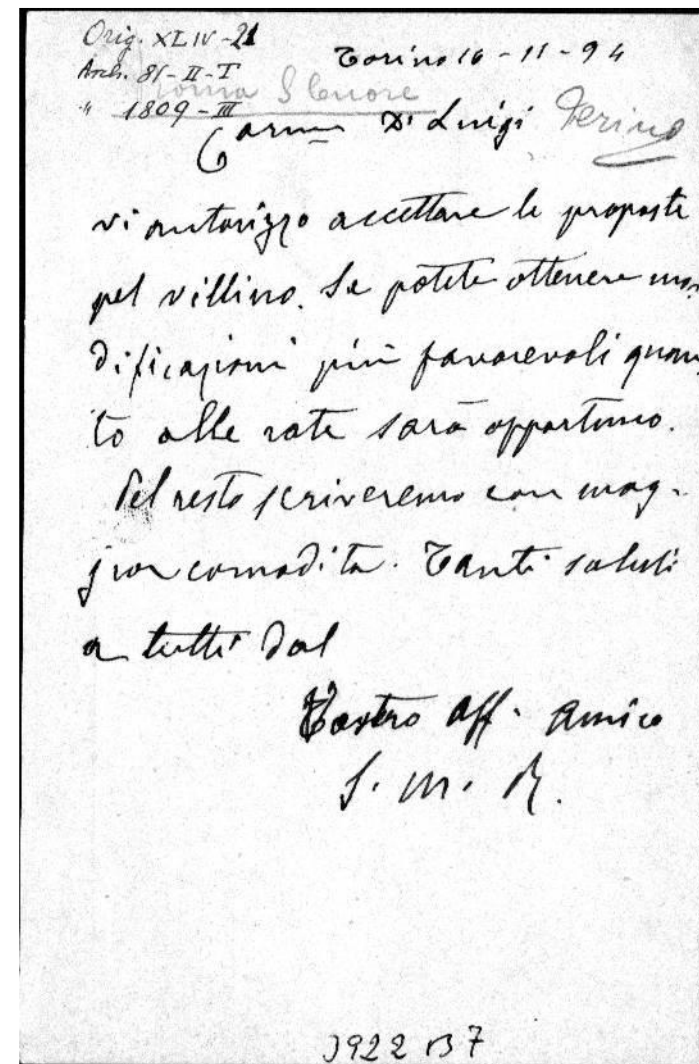 Orig. XLIV-21
Torino 16-11-94
Arch. 81-II-I
" 1809-III
Roma S
Carmo D. Luigi
vi autorizzo accettare le proposte
pel villino. Se potete ottenere mo-
dificazioni più favorevoli quan-
to alle rate sarà opportuno.
Del resto scriveremo con mag-
gior comodità. Tanti saluti
a tutti dal
Vostro Aff. Amico
S. M. R.
3922 B7